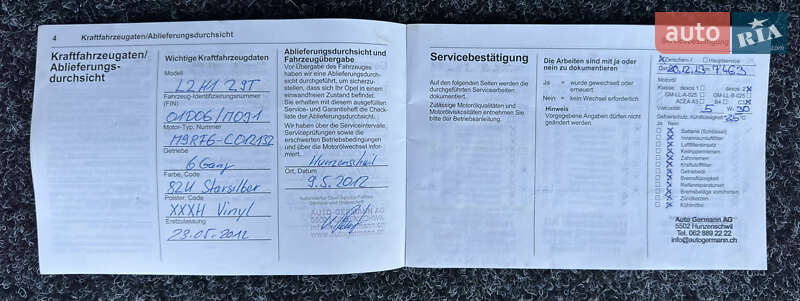 4 Kraftfahrzeugaten/Ablieferungsdurchsicht
Kraftfahrzeugaten/
Ablieferungs-
durchsicht
Wichtige Kraftfahrzeugdaten
Modell
L2H1 2,9T
Fahrzeug-Identifizierungsnummer
(FIN)
01D06/M091
Motor-Typ, Nummer
M9R76-C012132
Getriebe
6 Gang
Farbe, Code
82U Starsilber
Polster, Code
XXXH Vinyl
Erstzulassung
23.05.2012
Ablieferungsdurchsicht und
Fahrzeugübergabe
Vor Übergabe des Fahrzeuges
haben wir eine Ablieferungsdurch-
sicht durchgeführt, um sicherzu-
stellen, dass sich Ihr Opel in einem
einwandfreien Zustand befindet.
Sie erhalten mit dieser ausgefüllten
Service- und Garantieheft die Check-
liste der Ablieferungsdurchsicht.
Wir haben die Serviceintervalle,
Serviceprüfungen sowie die
erschwerten Betriebsbedingungen
und über die Motorölwechsel infor-
miert.
Hunzenschwil
Ort, Datum
9.5.2012
AUTO GERMANN AG
Servicebestätigung
Servicebestätigung
Auf den folgenden Seiten werden die
durchgeführten Servicearbeiten
dokumentiert.
Zulässige Motorölqualitäten und
Motorölviskositäten entnehmen Sie
bitte der Betriebsanleitung.
Die Arbeiten sind mit ja oder
nein zu dokumentieren
Ja = wurde gewechselt oder
erneuert.
Nein = kein Wechsel erforderlich
Hinweis
Vorgegebene Angaben dürfen nicht
geändert werden.
Zwischen-/ Hauptservice
20.12.13-7463
Motoröl:
Klasse: dexos 1 dexos 2
GM-LL-A-025 GM-LL-B-025
ACEA A3 B4 C3
Viskosität: 5 W 30
Gefrierschutz, Kühlflüssigkeit -25 °C
Ja Nein
Batterie (Schlüssel)
Innenraumluftfilter
Luftfiltereinsatz
Keilrippenriemen
Zahnriemen
Kraftstofffilter
Getriebeöl
Bremsflüssigkeit
Reifenreparaturset
Bremsbeläge vorn/hinten
Zündkerzen
Kühlmittel
Auto Germann AG
5502 Hunzenschwil
Tel. 062 889 22 22
info@autogermann.ch
auto RIA.com